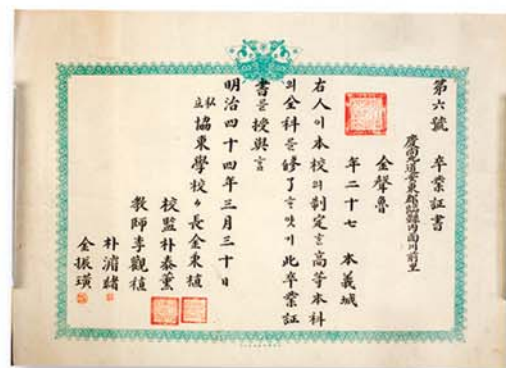 第六號 卒業証書
慶尙道安東郡臨縣內面川前里
金聲魯
年二十七 本義城
右人이本校의制定한高等本科
의全科를修了한 이此卒業証
書를授與함
明治四十四年三月三十日
私立協東學校 長金東植
校監朴泰薰
敎師李觀植
朴 緖
金振璜